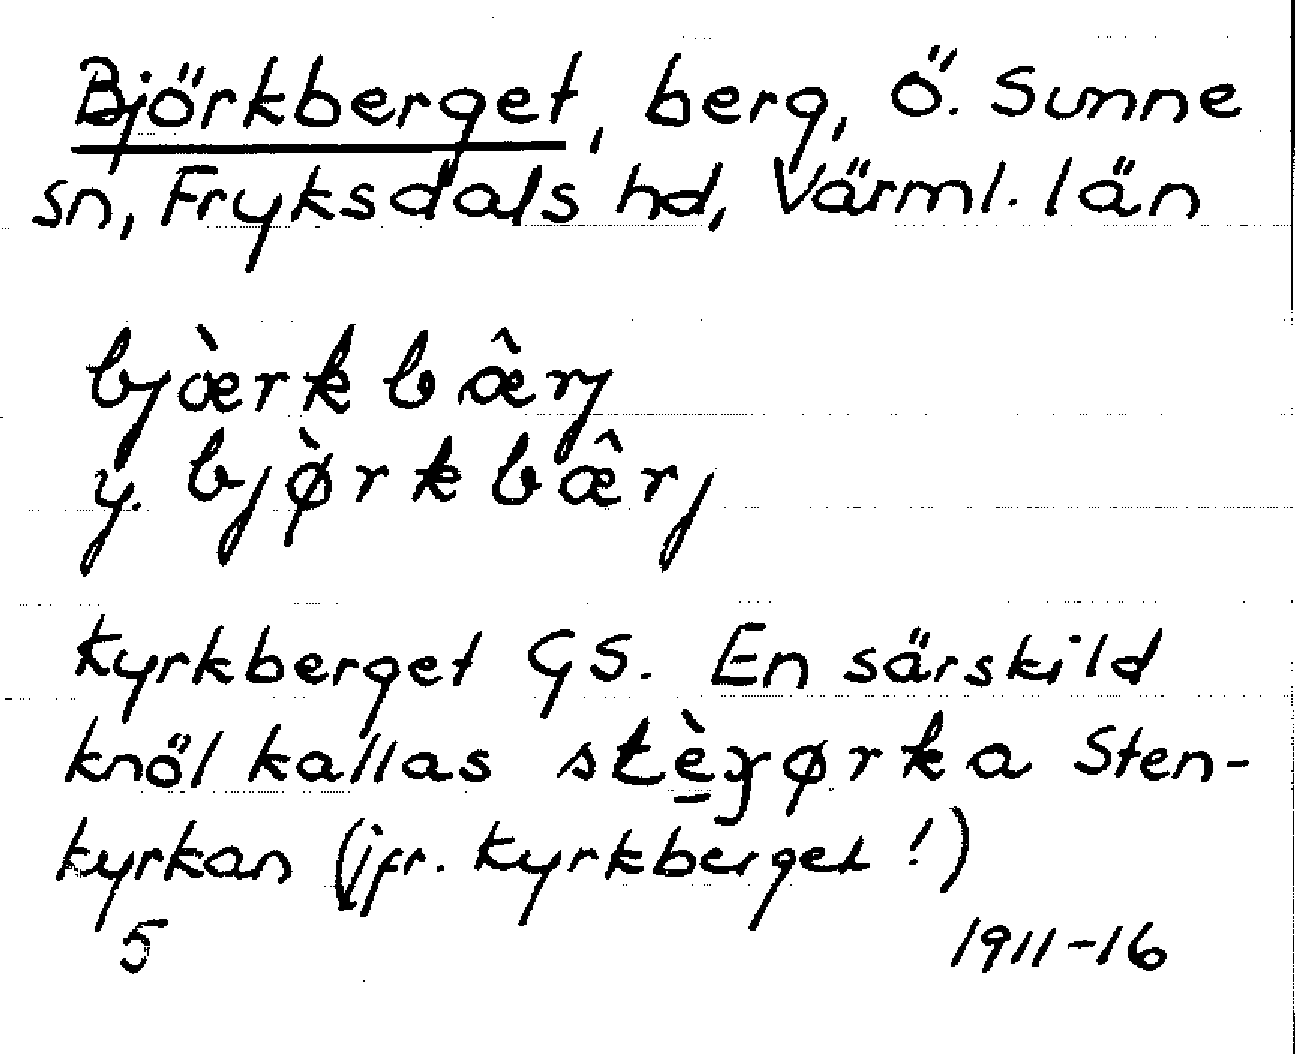 Björkberget, berg, Ö. Sunne
sn, Fryksdals hd, Värml. län
bjæ̀rkbæ̂rj
y. bjø̀rkbæ̂rj
Kyrkberget GS. En särskild
knöl kallas Sten-
kyrkan (jfr. Kyrkberget!)
5 1911-16